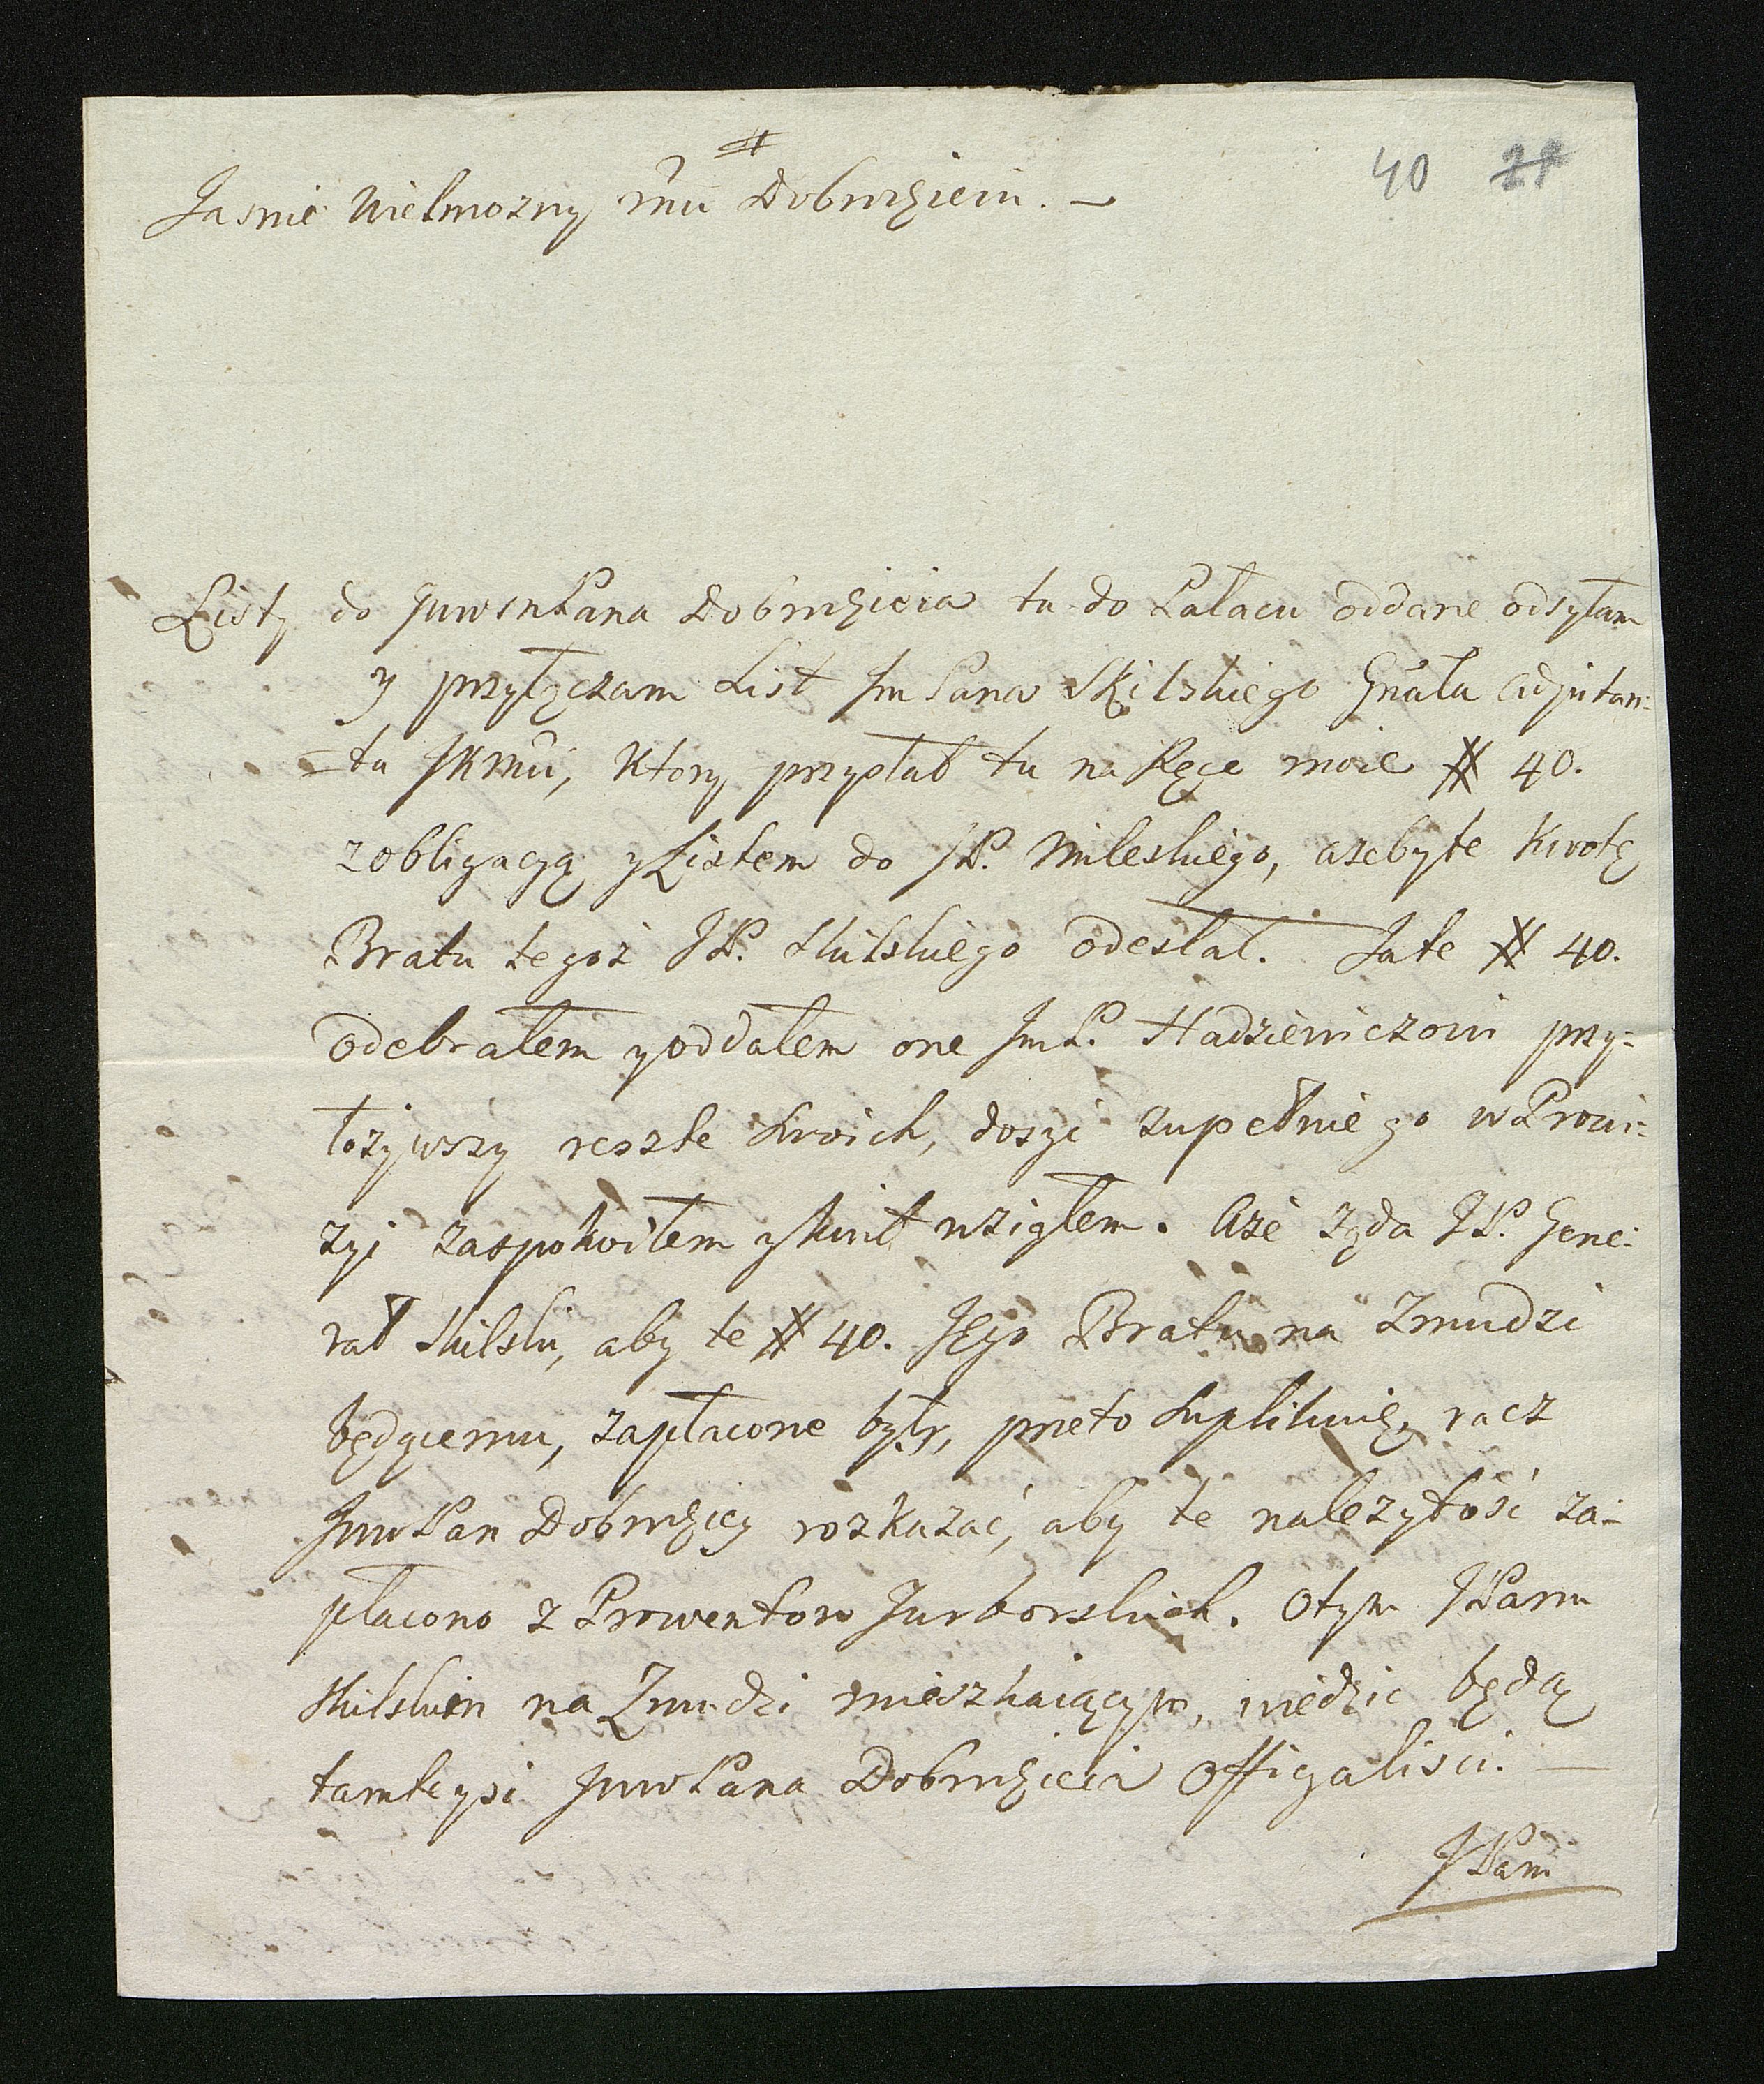 40 27
#
Jasnie Wielmozny Mći Dobrodzieiu. –
Listy do JWWMPana Dobrodzieia tu do Pałacu oddane odsyłam
y przyłączam List Jm Pana Skilskiego Gnała Adjutan:
=ta JKMći, Ktory przysłał tu na Ręce moie # 40.
z obligacyą y Listem do JP. Mileskiego, azeby te Kwotę
Bratu tegoż JP. Skilskiego odesłał. Ja te # 40.
odebrałem y oddałem one JmP. Hadziewiczowi przy:
łozywszy reszte Swoich, dosyć zupełnie go w Prowi:
zyi zaspokoiłem y kwit wziąłem. Aże żąda JP. Gene:
rał Skilski, aby te # 40. Jego Bratu na Zmudzi
będącemu, zapłacone były, przeto Suplikuię, racz
JWWPan Dobrodziey rozkazać, aby te nalezytość za-
płacono z Prowentow Jurborskich. O tym JPanu
Skilskim na Zmudzi mieszkaiącym, wiedzic będą
tamteysi JWWPana Dobrodzieia Officyalisci. —
JPani